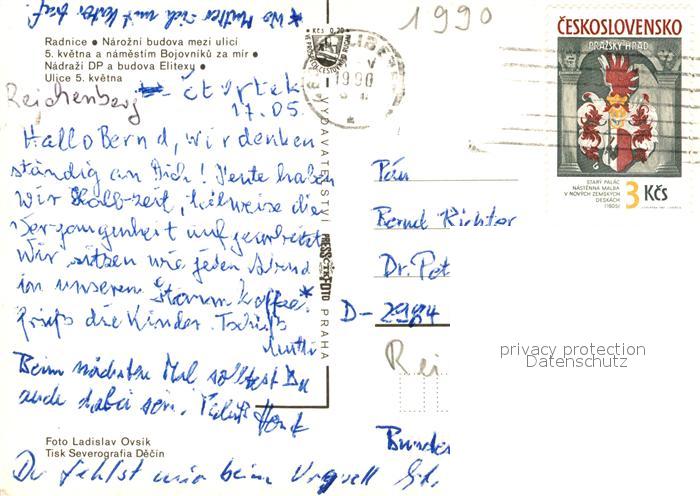 *Wo Mutter sich mit Kater traf.
1990
Radnice • Nárožní budova mezi ulicí
5. května a náměstím Bojovníků za mír •
Nádraží DP a budova Elitexu •
Ulice 5. května
Reichenberg
čtvrtek
17.05.
Hallo Bernd, wir denken
ständig an Dich! Heute haben
wir Halbzeit, teilweise die
Vergangenheit aufgearbeitet
Wir sitzen wie jeden Abend
in unserem Stammkaffee*
Grüß die Kinder. Tschüß
Mutti
Beim nächsten Mal solltest Du
auch dabei sein.
Du fehlst mir beim Urquell
Foto Ladislav Ovsík
Tisk Severografia Děčín
VYDAVATELSTVÍ PRESSFOTO PRAHA
Kčs 0,20
1990
ČESKOSLOVENSKO
PRAŽSKÝ HRAD
STARÝ PALÁC
NÁSTĚNNÁ MALBA
V NOVÝCH ZEMSKÝCH
DESKÁCH
(1605)
3 Kčs
Pán
Bernd Richter
Dr. Pet
D-2984
privacy protection
Datenschutz